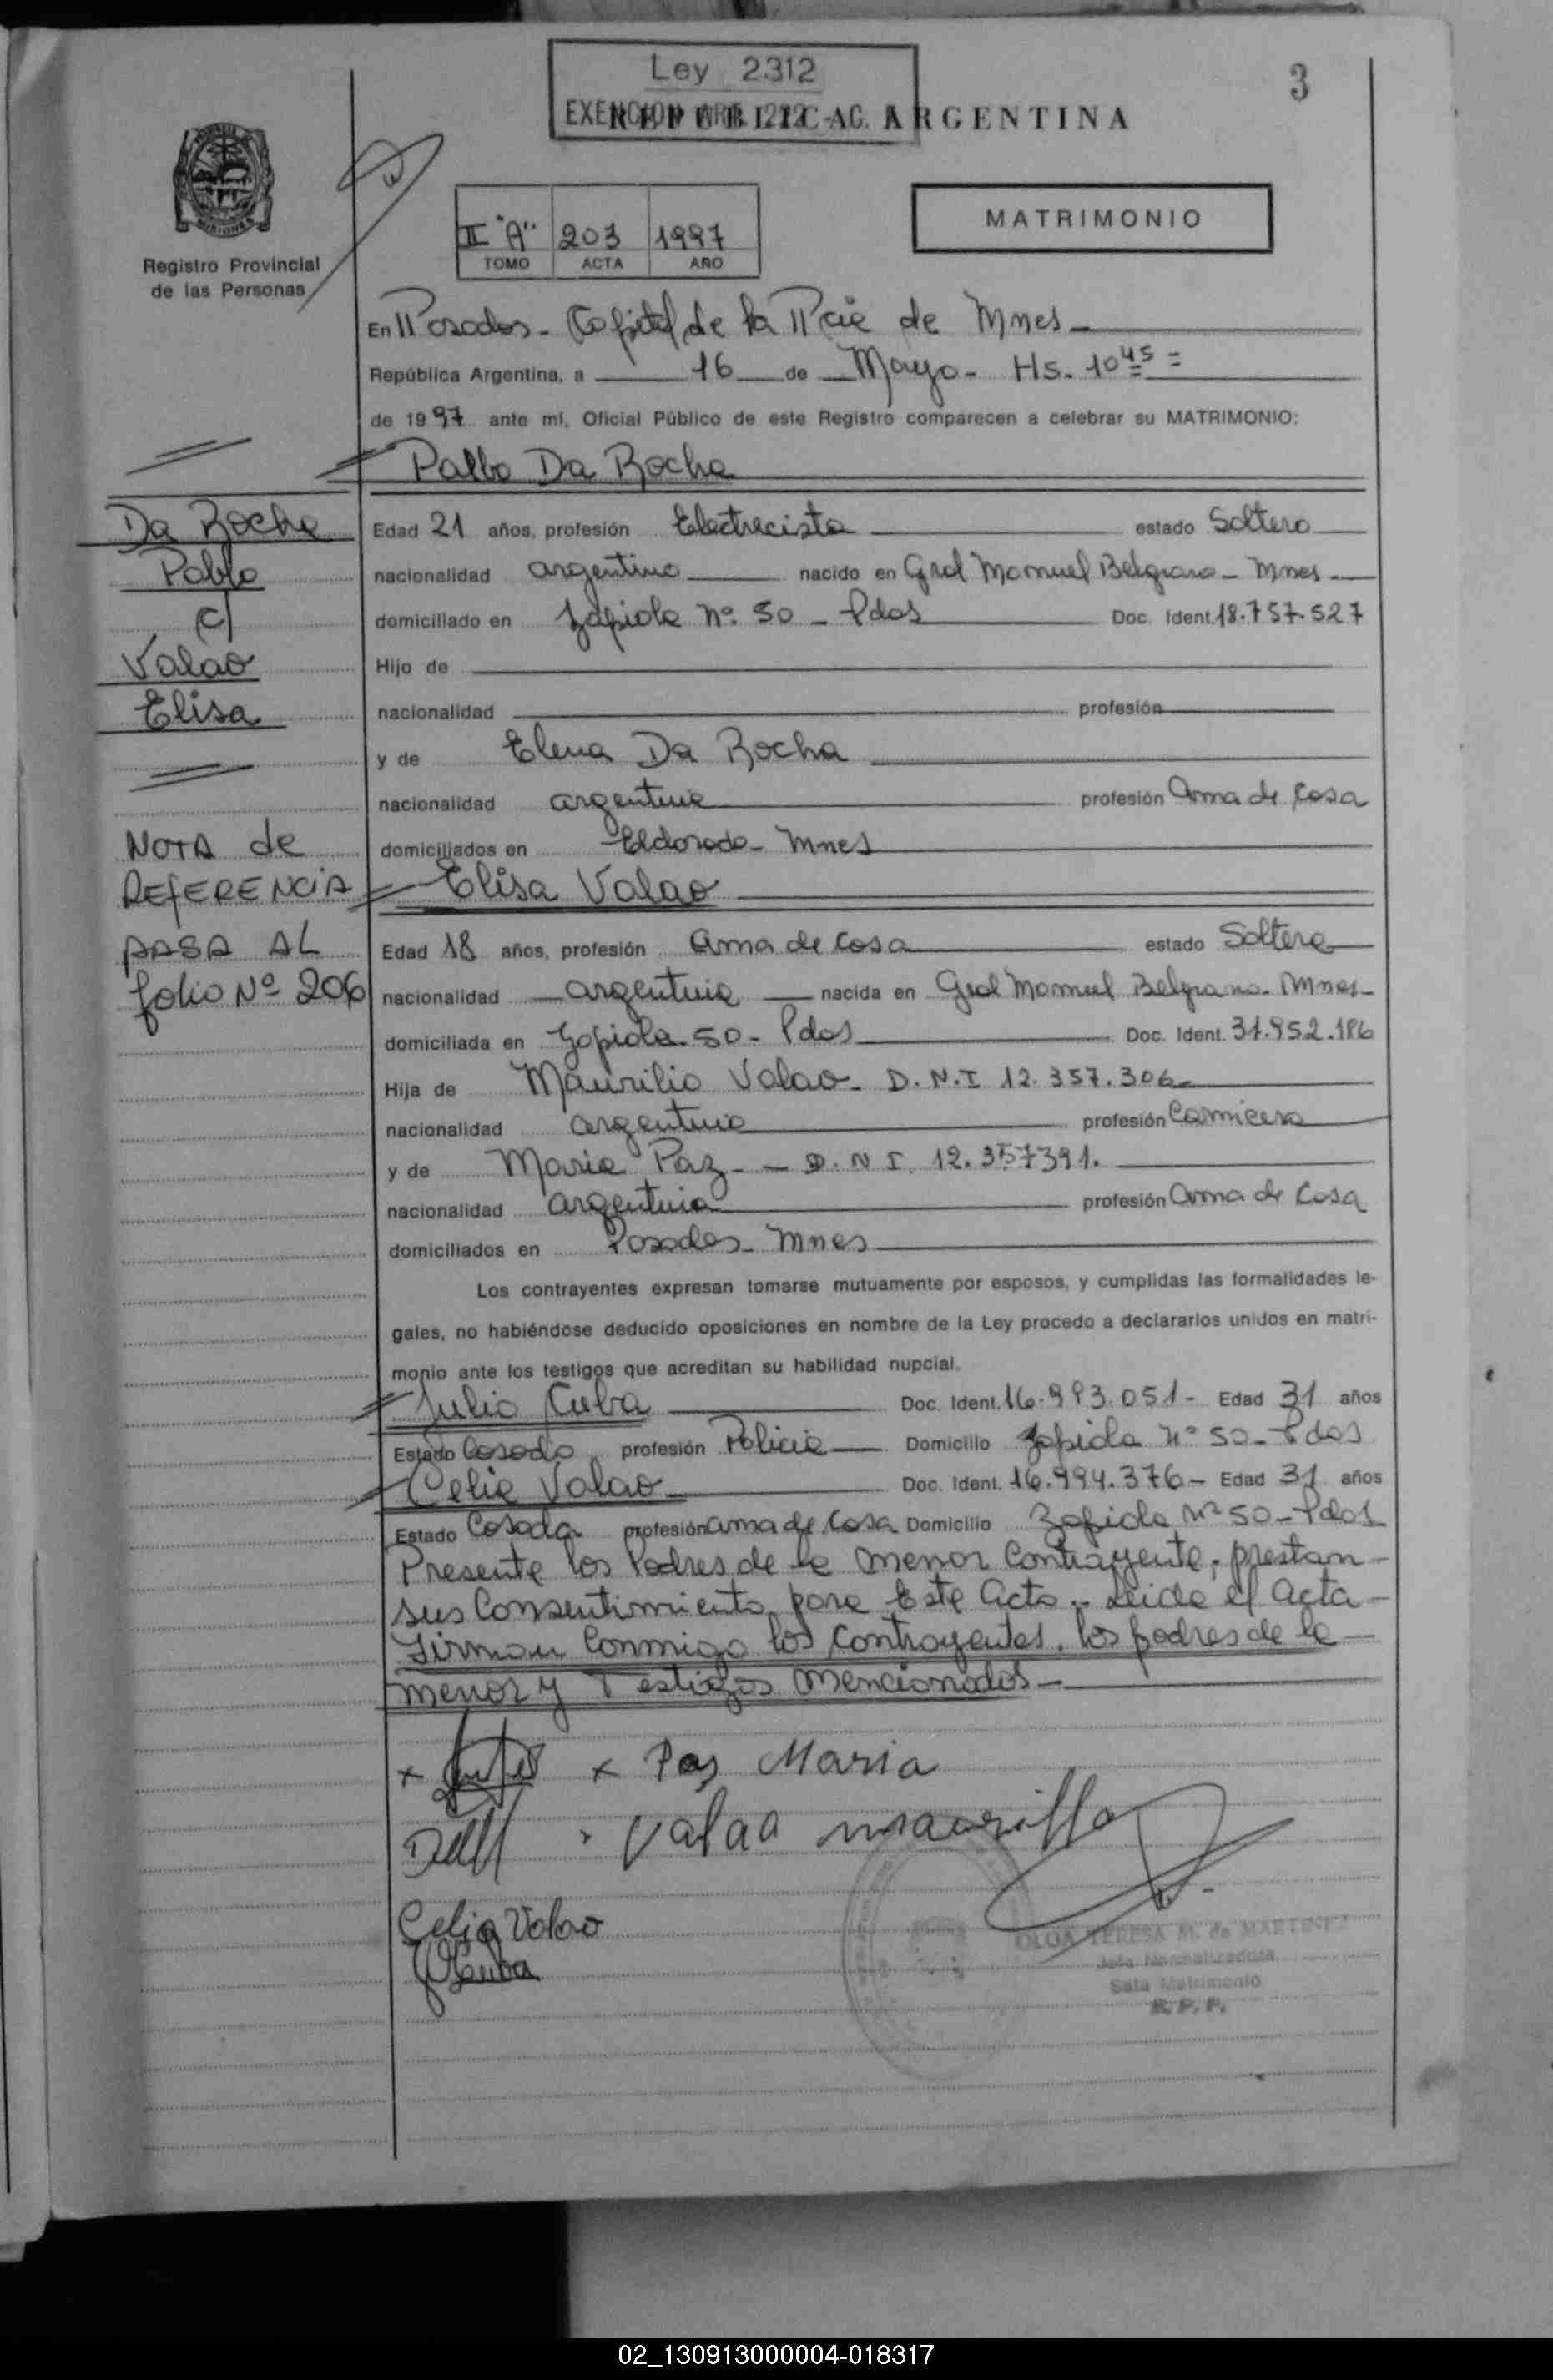 Ley 2312
3
EXENCION ARB. 1222-AC.
REPUBLICA ARGENTINA
MISIONES
Registro Provincial
de las Personas
II "A" 203 1997
TOMO ACTA AÑO
MATRIMONIO
En Posadas - Capital de la Pcia de Mnes -
República Argentina, a 16 de Mayo - Hs. 10 45 =
de 1997 ante mí, Oficial Público de este Registro comparecen a celebrar su MATRIMONIO:
Palbo Da Rocha
Da Rocha
Pablo
c/
Valao
Elisa
Edad 21 años, profesión Electrecista estado Soltero
nacionalidad argentino nacido en Gral Manuel Belgrano - Mnes -
domiciliado en Zapiola nº 50 - Pdas Doc. Ident. 18.757.527
Hijo de
nacionalidad profesión
y de Elena Da Rocha
nacionalidad argentina profesión Ama de Casa
domiciliados en Eldorado - Mnes
NOTA de
REFERENCIA
PASA AL
folio Nº 206
Elisa Valao
Edad 18 años, profesión ama de casa estado Soltera
nacionalidad argentina nacida en Gral Manuel Belgrano - Mnes -
domiciliada en Zapiola 50 - Pdas Doc. Ident. 31.952.186
Hija de Maurilio Valao - D.N.I 12.357.306 -
nacionalidad argentino profesión Carnicero
y de Maria Paz - - D.N I. 12.357391.
nacionalidad argentina profesión Ama de Casa
domiciliados en Posadas - Mnes
Los contrayentes expresan tomarse mutuamente por esposos, y cumplidas las formalidades le-
gales, no habiéndose deducido oposiciones en nombre de la Ley procedo a declararlos unidos en matri-
monio ante los testigos que acreditan su habilidad nupcial.
Julio Cuba Doc. Ident. 16.993.051 - Edad 31 años
Estado Casado profesión Policia Domicilio Zapiola nº 50 - Pdas
Celia Valao Doc. Ident. 16.994.376 - Edad 31 años
Estado Casada profesión ama de casa Domicilio Zapiola Nº 50 - Pdas
Presente los Padres de la menor Contrayente, prestan -
sus Consentimiento para Este Acto. - Leida el acta -
Firman Conmigo los Contrayentes, los padres de la -
menor y Testigos mencionados -
x x Pas Maria
Valao maurillo
Celia Valao
Cuba
OLGA TERESA M. de MARTINEZ
Jefa Normalizadora
Sala Matrimonio
R. P. P.
02_130913000004-018317